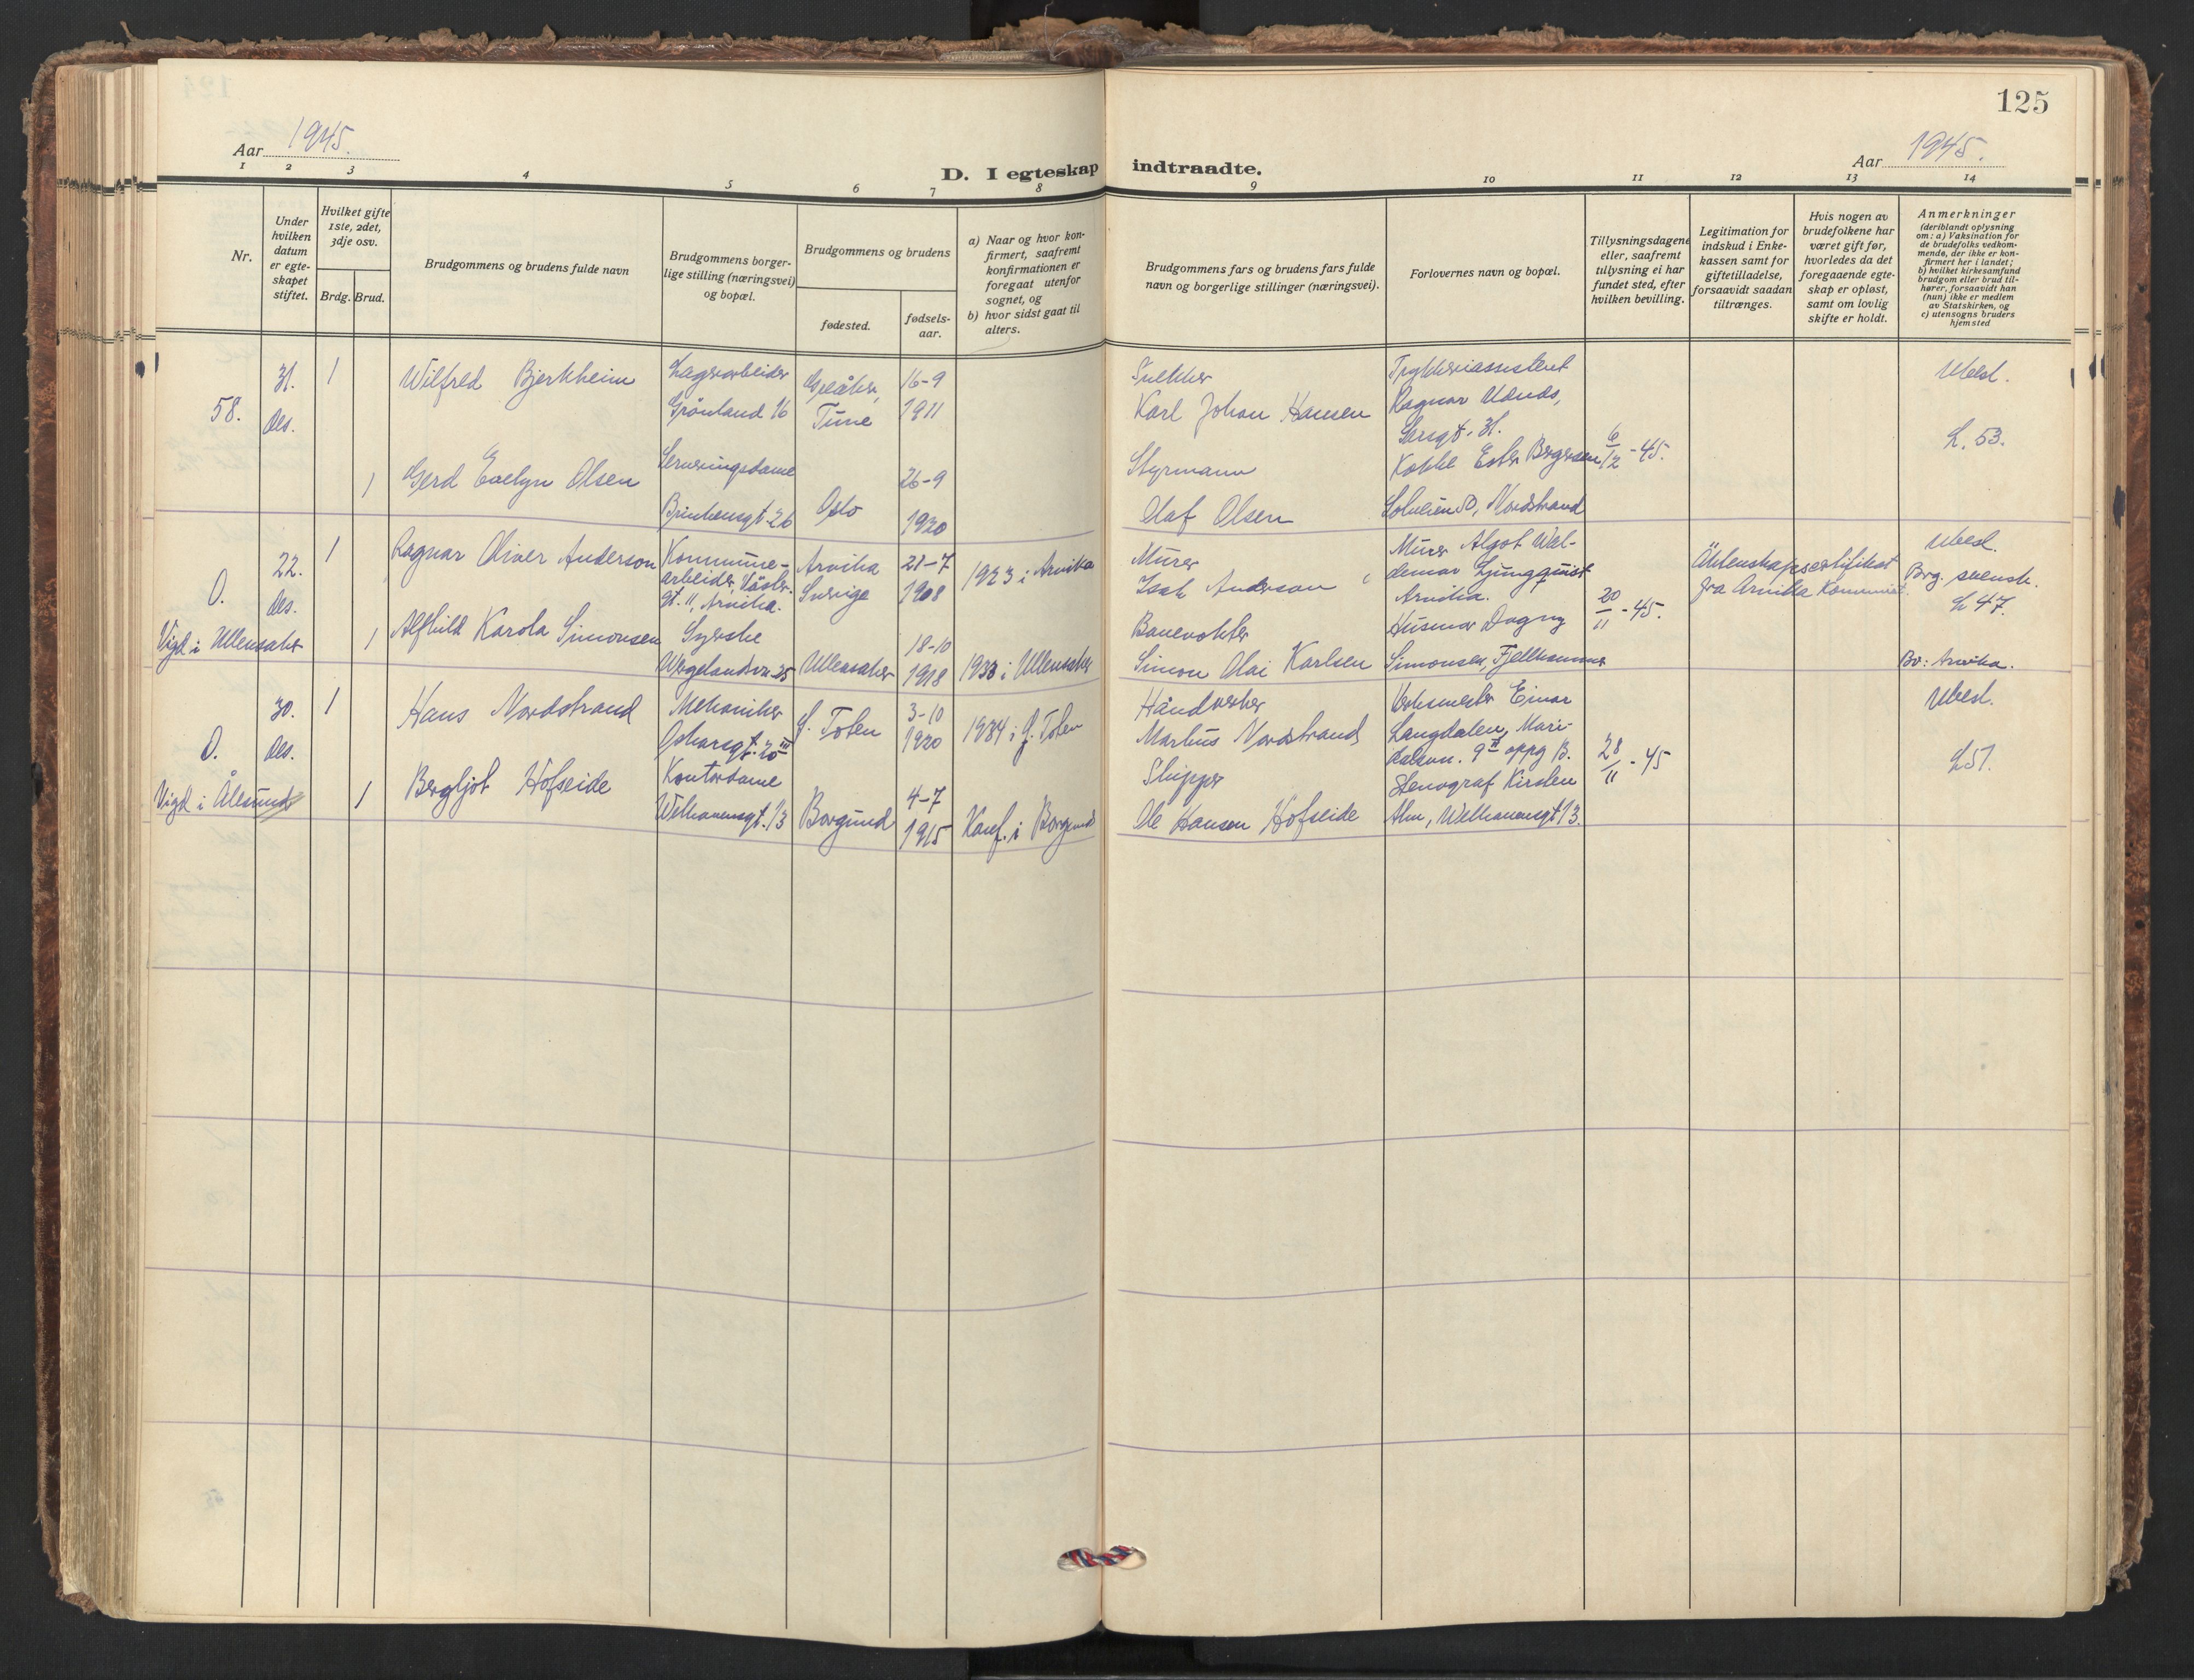 125
Aar 1945.
Aar 1945.
D. I egteskap indtraadte.
1 2 3 4 5 6 7 8 9 10 11 12 13 14
Nr.
Under
hvilken
datum
er egte-
skapet
stiftet.
Hvilket gifte
1ste, 2det,
3dje osv.
Brdg. Brud.
Brudgommens og brudens fulde navn
Brudgommens borger-
lige stilling (næringsvei)
og bopæl.
Brudgommens og brudens
fødested.
fødsels-
aar.
a) Naar og hvor kon-
firmert, saafremt
konfirmationen er
foregaat utenfor
sognet, og
b) hvor sidst gaat til
alters.
Brudgommens fars og brudens fars fulde
navn og borgerlige stillinger (næringsvei).
Forlovernes navn og bopæl.
Tillysningsdagene
eller, saafremt
tillysning ei har
fundet sted, efter
hvilken bevilling.
Legitimation for
indskud i Enke-
kassen samt for
giftetilladelse,
forsaavidt saadan
tiltrænges.
Hvis nogen av
brudefolkene har
været gift før,
hvorledes da det
foregaaende egte-
skap er opløst,
samt om lovlig
skifte er holdt.
Anmerkninger
(deriblandt oplysning
om: a) Vaksination for
de brudefolks vedkom-
mende, der ikke er kon-
firmert her i landet;
b) hvilket kirkesamfund
brudgom eller brud til-
hører, forsaavidt han
(hun) ikke er medlem
av Statskirken, og
c) utensogns bruders
hjemsted
58.
31.
des.
1
Wilfred Bjerkheim
Lagerarbeider
Grønland 16
Greåker,
Tune
16-9
1911
Karl Johan Hansen
Trykkeriassistent
Ragnar
31.
Ubesl.
L. 53.
1
Gerd Evelyn Olsen
Serveringsdame
26
Oslo
26-9
1920
Styrmann
Olaf Olsen
Kokke Ester Bergersen
Nordstrand
6/12 - 45.
O.
Vigd i Ullensaker
22.
des.
1
Ragnar Oliver Anderson
Kommune-
arbeider, Väster-
gt. 11, Arvika.
Arvika
Sverige
21-7
1908
1923 i Arvika
Murer
Isak Anderson
Murer Algot Wal-
demar Ljungquist
Arvika.
20/11 - 45.
fra Arvika Kommune.
Ubesl.
Brg. svensk.
L 47.
Bo: Arvika.
1
Alfhild Karola Simonsen
Syerske
Wergelandsvn. 25
Ullensaker
18-10
1918
1933 i Ullensaker
Banevokter
Simon Olai Karlsen
Husmor Dagny
Simonsen, Fjellhammer
O.
Vigd i Ålesund
30.
des.
1
Hans Nordstrand
Mekaniker
Oskarsgt. 20 III
Ø. Toten
3-10
1920
1934 i Ø. Toten
Håndverker
Markus Nordstrand
Verksmester Einar
Langdalen, Mari-
dalsvn. 9 II oppg B.
28/11 - 45
Ubesl.
L 51.
1
Bergljot Hofseide
Kontordame
Welhavensgt. 13
Borgund
4-7
1915
Konf. i Borgund
Skipper
Ole Hansen Hofseide
Stenograf Kirsten
Alm, Welhavensgt 13.